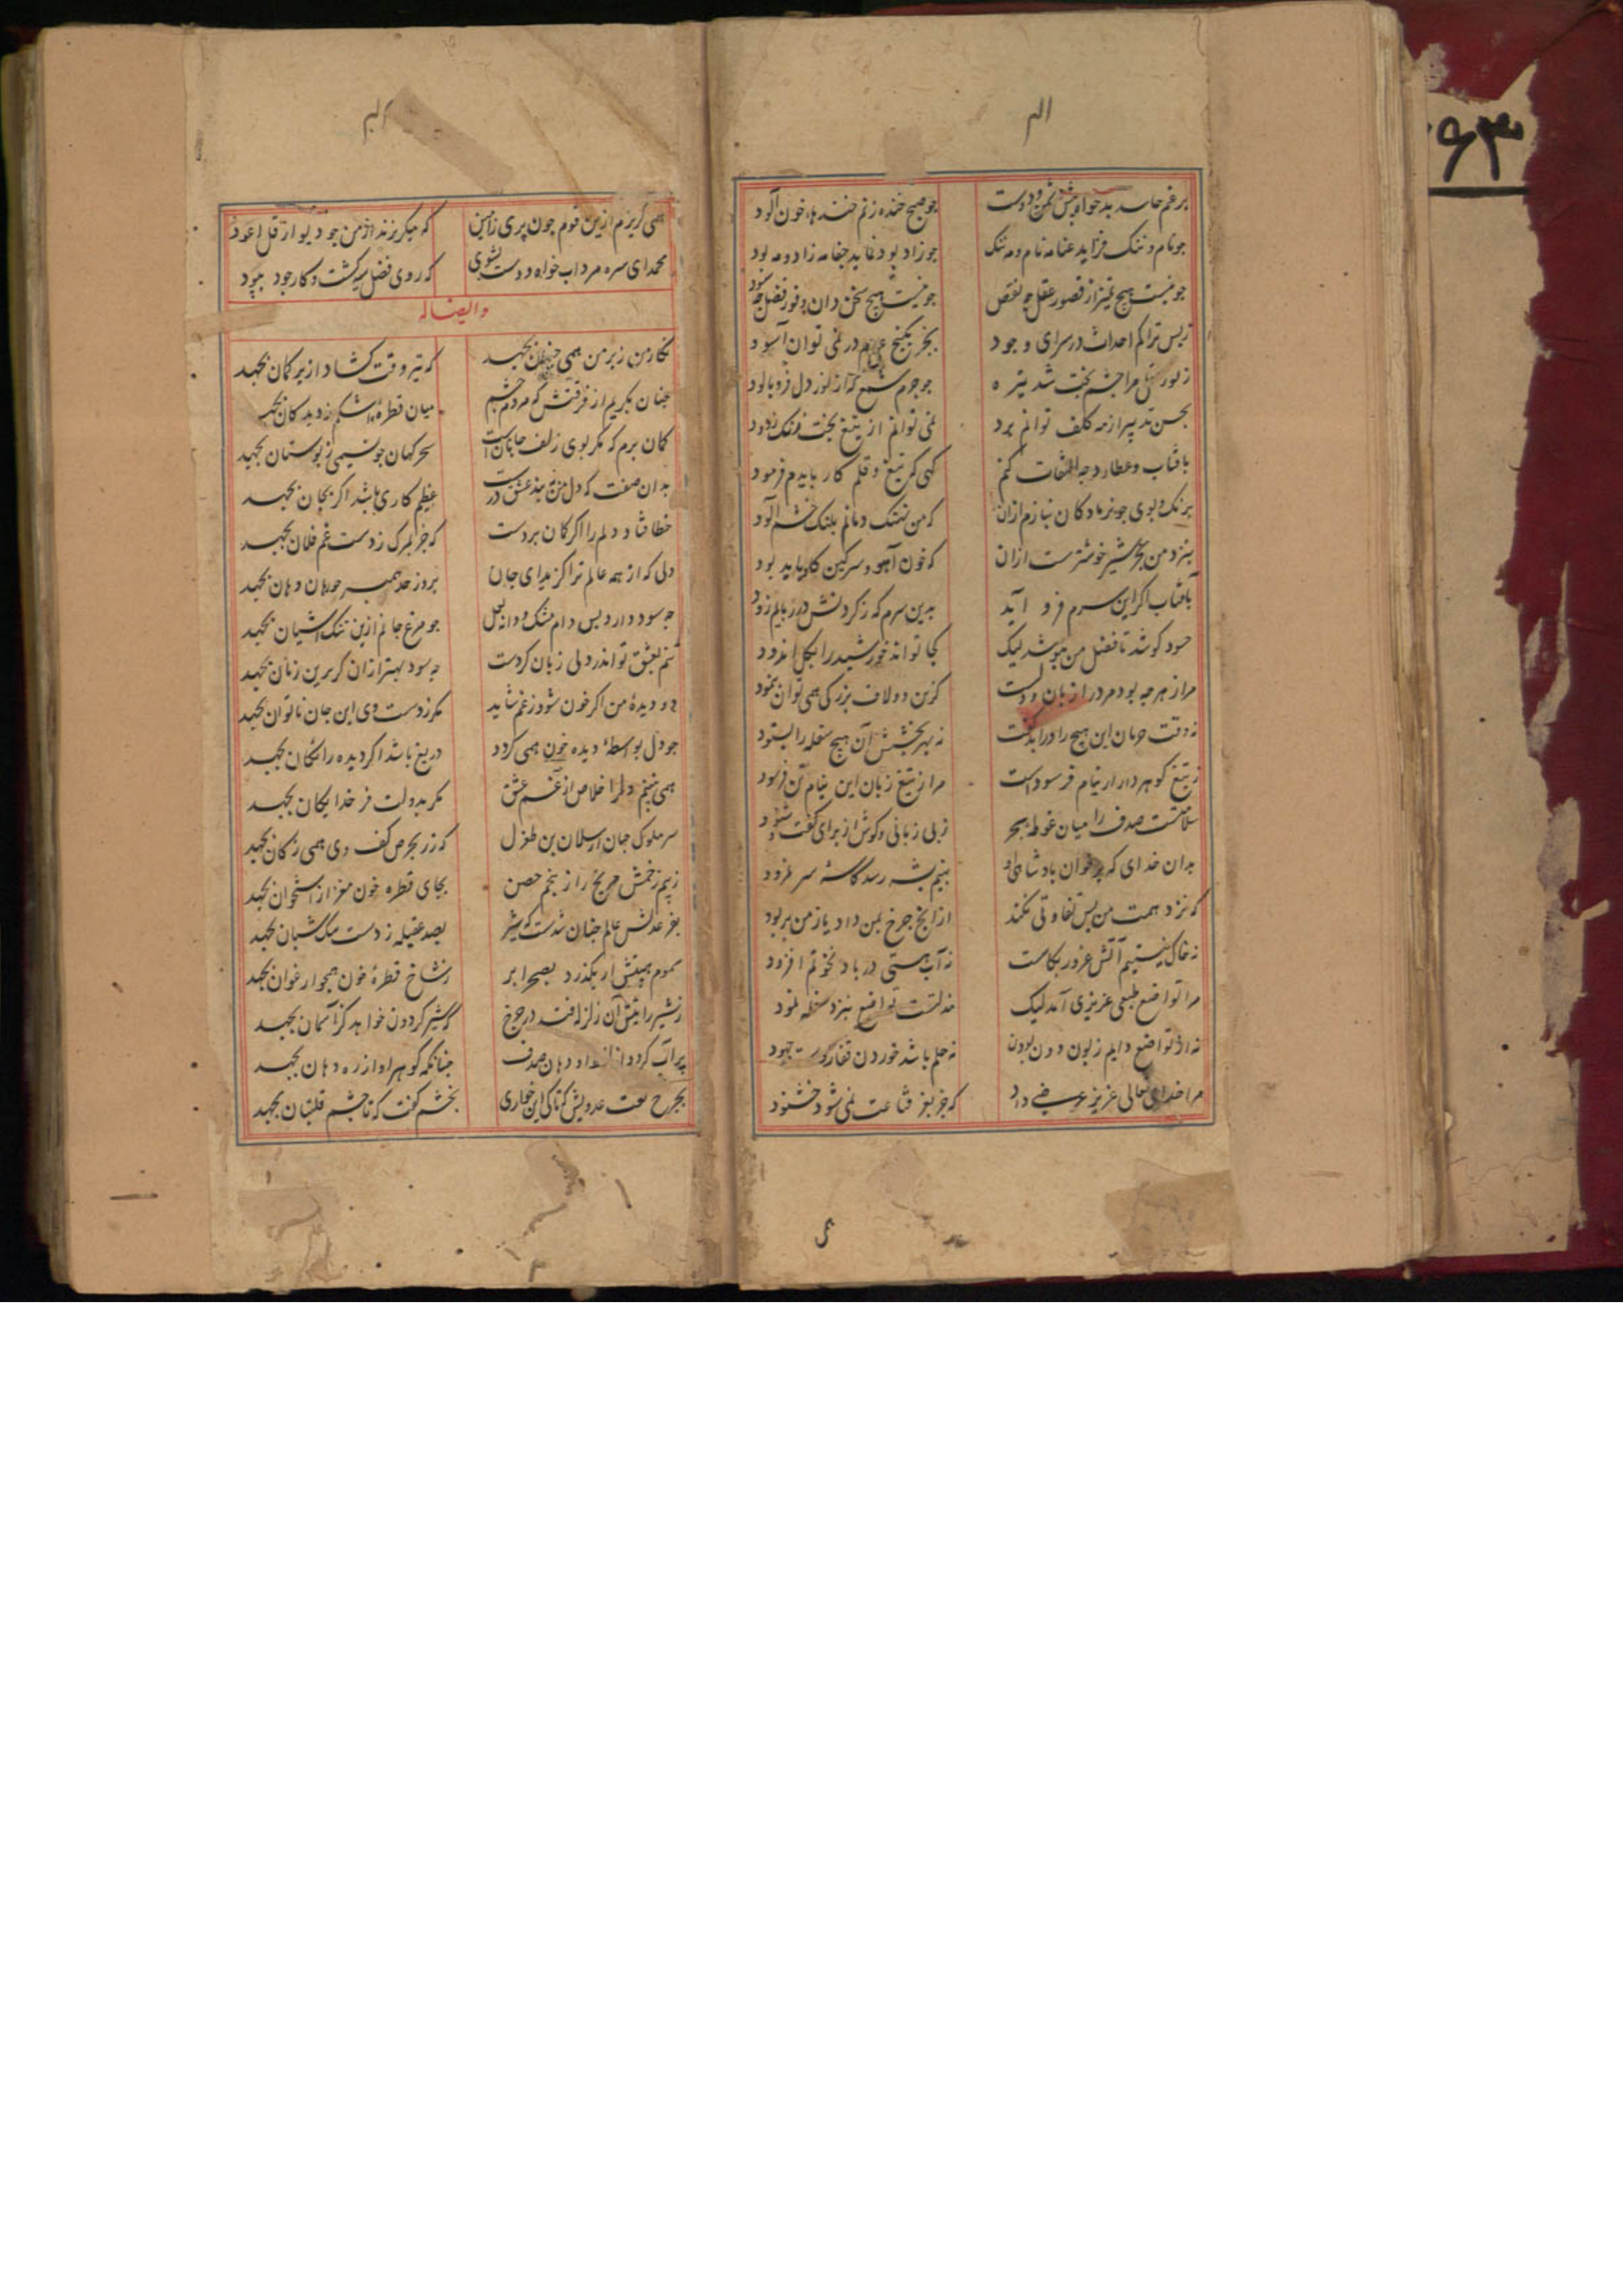 برغم حاسد بدخواه پیش دشمن و دوست جو صبح خنده زنم خنده‌ها خون آلود
جو نام و ننک فزاید عنا نه نام و نه ننک جو زاد بود نماید جفا نه زاد و نه بود
جو نیست هیچ تمیز از قصور عقل چه نقص جو نیست هیچ سخن دان وفور فضل چه سود
ز بس تراکم احداث در سرای وجود بجز بکنج عدم در نمی توان آسود
ز نور عقل مرا چشم بخت شد تیره جو جرم شمع که از نور دل فرو پالود
بحسن تدبیر از مه کلف توانم برد نمی توانم از تیغ بخت زنک زدود
بآفتاب و عطارد چه التفات کنم کهی که تیغ و قلم کار بایدم فرمود
برنک و بوی جو نر مادکان نیازم ازان که من نهنک دمانم پلنک خشم آلود
بنزد من بجه شیر خوشترست ازان که خون آهو و سرکین کاو باید بود
بآفتاب اکر این سرم فرو آید بدین سرم که ز کردنش در ربایم زود
حسود کوشد تا فضل من بپوشد لیک کجا تواند خورشید را بکل اندود
مرا ز هرجه بود مرد را زبان و دلست کزین دو لاف بزرکی همی توان نمود
نه وقت حرمان این هیچ را در اندخت نه بهر بخشش آن هیچ سفله را بستود
ز تیغ کوهردار ار نیام فرسودست مرا ز تیغ زبان این نیام تن فرسود
سلامتست صدف را میان غوطه بحر ز بی زبانی و کوش از برای کفت و شنود
بدان خدای که بر خوان بادشاهی او بنیم پشه رسد کاسه سر نمرود
که نزد همت من بس تفاوتی نکند از انج جرخ بمن داد یا ز من بربود
نه خاک نیستیم آتش غرور بکاست نه آب هستی در باد نخوتم افزود
مرا تواضع طبعی عزیزی آمد لیک مذلتست تواضع بنزد سفله نمود
نه از تواضع دایم زبون دون بودن نه حلم باشد خوردن قفا ز دست جهود
مرا خدای تعالی عزیز عرضی داد که جز بعز قناعت نمی شود خشنود
همی کریزم ازین قوم چون پری ز آهن که میکریزند از من جو دیو از قل اعوذ
محمد ای سره مرد آب خواه و دست بشوی که روی فضل سیه کشت و کار جود ببود
و ایضا له
نکار من ز بر من همی جنان بجهد که تیر وقت کشاد از بر کمان بجهد
جنان بکریم از فرقتش که مردم چشم میان قطره اشکم ز دیدکان بجهد
کمان برم که مکر بوی زلف جانانست سحرکهان جو نسیمی ز بوستان بجهد
بدان صفت که دل من به بند عشق درست عظیم کاری باشد اکر بجان بجهد
خطا فتاد دلم را اکر کمان بردست که جز بمرک ز دست غم فلان بجهد
دلی که از همه عالم ترا کزید ای جان
چه سود دارد بس دام مشک و دانه لعل جو مرغ جانم ازین تنک آشیان بجهد
تنم بعشق تو اندر دلی زیان کردست چه سود بهتر ازان کر برین زیان بجهد
دو دیده من اکر خون شود ز غم شاید مکر ز دست وی این جان ناتوان بجهد
جو دل بواسطه دیده خون همی کردد دریغ باشد اکر دیده رایکان بجهد
همی نبینم دلرا خلاص از غم عشق مکر بدولت فر خدایکان بجهد
سر ملوک جهان ارسلان بن طغرل که زر بحرص کف وی همی ز کان بجهد
ز بیم زخمش مریخ را ز پنجم حصن بجای قطره خون مغز از استخوان بجهد
بفر عدلش عالم جنان شدست که شیر بصد عقیله ز دست سک شبان بجهد
سموم هیبتش ار بکذرد بصحرا بر ز شاخ قطره خون همجو ارغوان بجهد
ز شیر رایتش آن زلزله فتد در جرخ که شیر کردون خواهد کز آسمان بجهد
پر آب کردد دهان صدف جنانکه کوهر او از ره دهان بجهد
بجرخ کفت عدویش که تا کی این خواری بخشم کفت که تا چشم قلتبان بجهد
۶۳